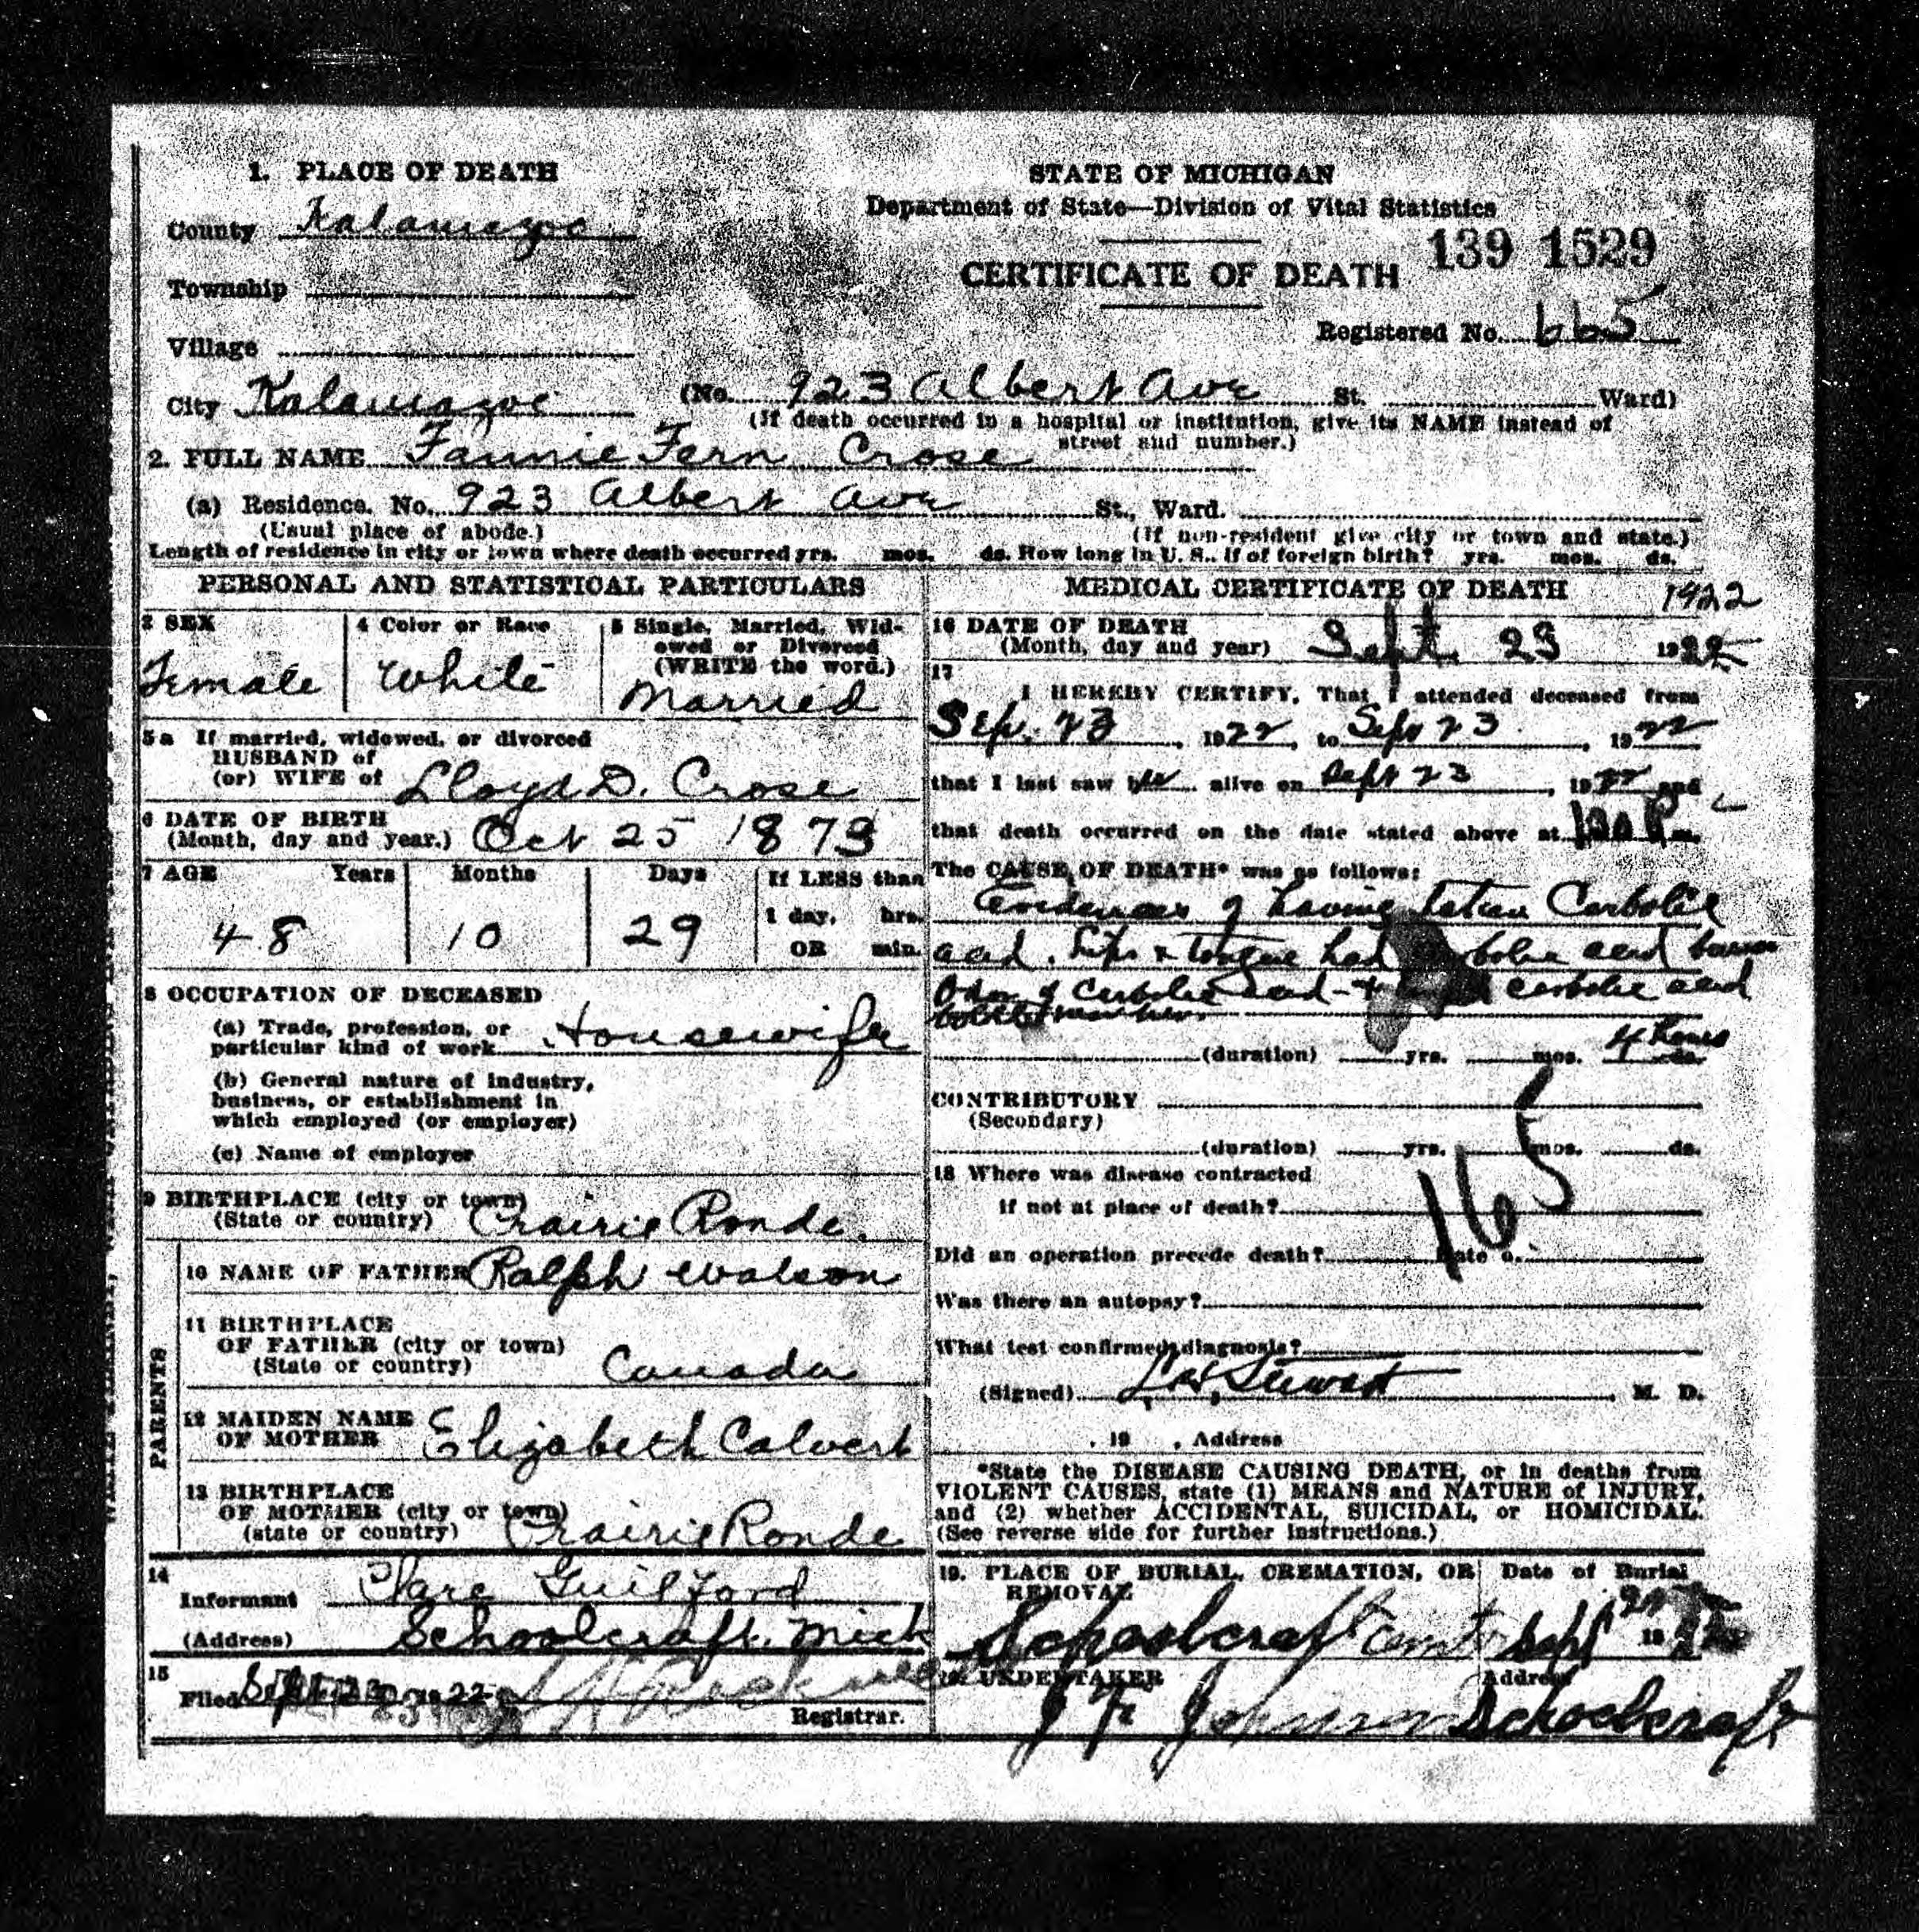 1. PLACE OF DEATH
County Kalamazoo
Township
Village
City Kalamazoo
STATE OF MICHIGAN
Department of State—Division of Vital Statistics
CERTIFICATE OF DEATH 139 1529
Registered No. 665
(No. 923 Albert Ave St. Ward)
(If death occurred in a hospital or institution, give its NAME instead of
street and number.)
2. FULL NAME Fannie Fern Crose
(a) Residence. No. 923 Albert Ave St., Ward.
(Usual place of abode.) (If non-resident give city or town and state.)
Length of residence in city or town where death occurred yrs. mos. ds. How long in U. S., if of foreign birth? yrs. mos. ds.
PERSONAL AND STATISTICAL PARTICULARS
3 SEX
Female
4 Color or Race
White
5 Single, Married, Wid-
owed or Divorced
(WRITE the word.)
Married
5a If married, widowed, or divorced
HUSBAND of
(or) WIFE of Lloyd D. Crose
6 DATE OF BIRTH
(Month, day and year.) Oct 25 1873
7 AGE Years Months Days If LESS than
1 day, hrs.
OR min.
48 10 29
8 OCCUPATION OF DECEASED
(a) Trade, profession, or
particular kind of work Housewife
(b) General nature of industry,
business, or establishment in
which employed (or employer)
(c) Name of employer
9 BIRTHPLACE (city or town)
(State or country) Prairie Ronde.
PARENTS
10 NAME OF FATHER Ralph Watson
11 BIRTHPLACE
OF FATHER (city or town)
(State or country) Canada
12 MAIDEN NAME
OF MOTHER Elizabeth Calvert
13 BIRTHPLACE
OF MOTHER (city or town)
(state or country) Prairie Ronde
14
Informant Clare Guilford
(Address) Schoolcraft, Mich
15
Filed Sept 23 1922
Registrar.
MEDICAL CERTIFICATE OF DEATH 1922
16 DATE OF DEATH
(Month, day and year) Sept. 23 1922
17
I HEREBY CERTIFY, That I attended deceased from
Sep. 23, 1922, to Sept 23, 1922
that I last saw her alive on Sept 23, 1922 and
that death occurred on the date stated above at m.
The CAUSE OF DEATH* was as follows:
Evidences of having taken Carbolic
acid. Lips & tongue had carbolic acid burns
Odor of Carbolic acid - + carbolic acid
bottle near her.
(duration) yrs. mos. 4 hours ds.
CONTRIBUTORY
(Secondary)
(duration) yrs. mos. ds.
165
18 Where was disease contracted
if not at place of death?
Did an operation precede death? Date o.
Was there an autopsy?
What test confirmed diagnosis?
(Signed) Stewart, M. D.
, 19 , Address
*State the DISEASE CAUSING DEATH, or in deaths from
VIOLENT CAUSES, state (1) MEANS and NATURE of INJURY,
and (2) whether ACCIDENTAL, SUICIDAL, or HOMICIDAL.
(See reverse side for further instructions.)
19. PLACE OF BURIAL, CREMATION, OR
REMOVAL
Schoolcraft
Date of Burial
Sept 19
UNDERTAKER
J F Johnson
Address
Schoolcraft